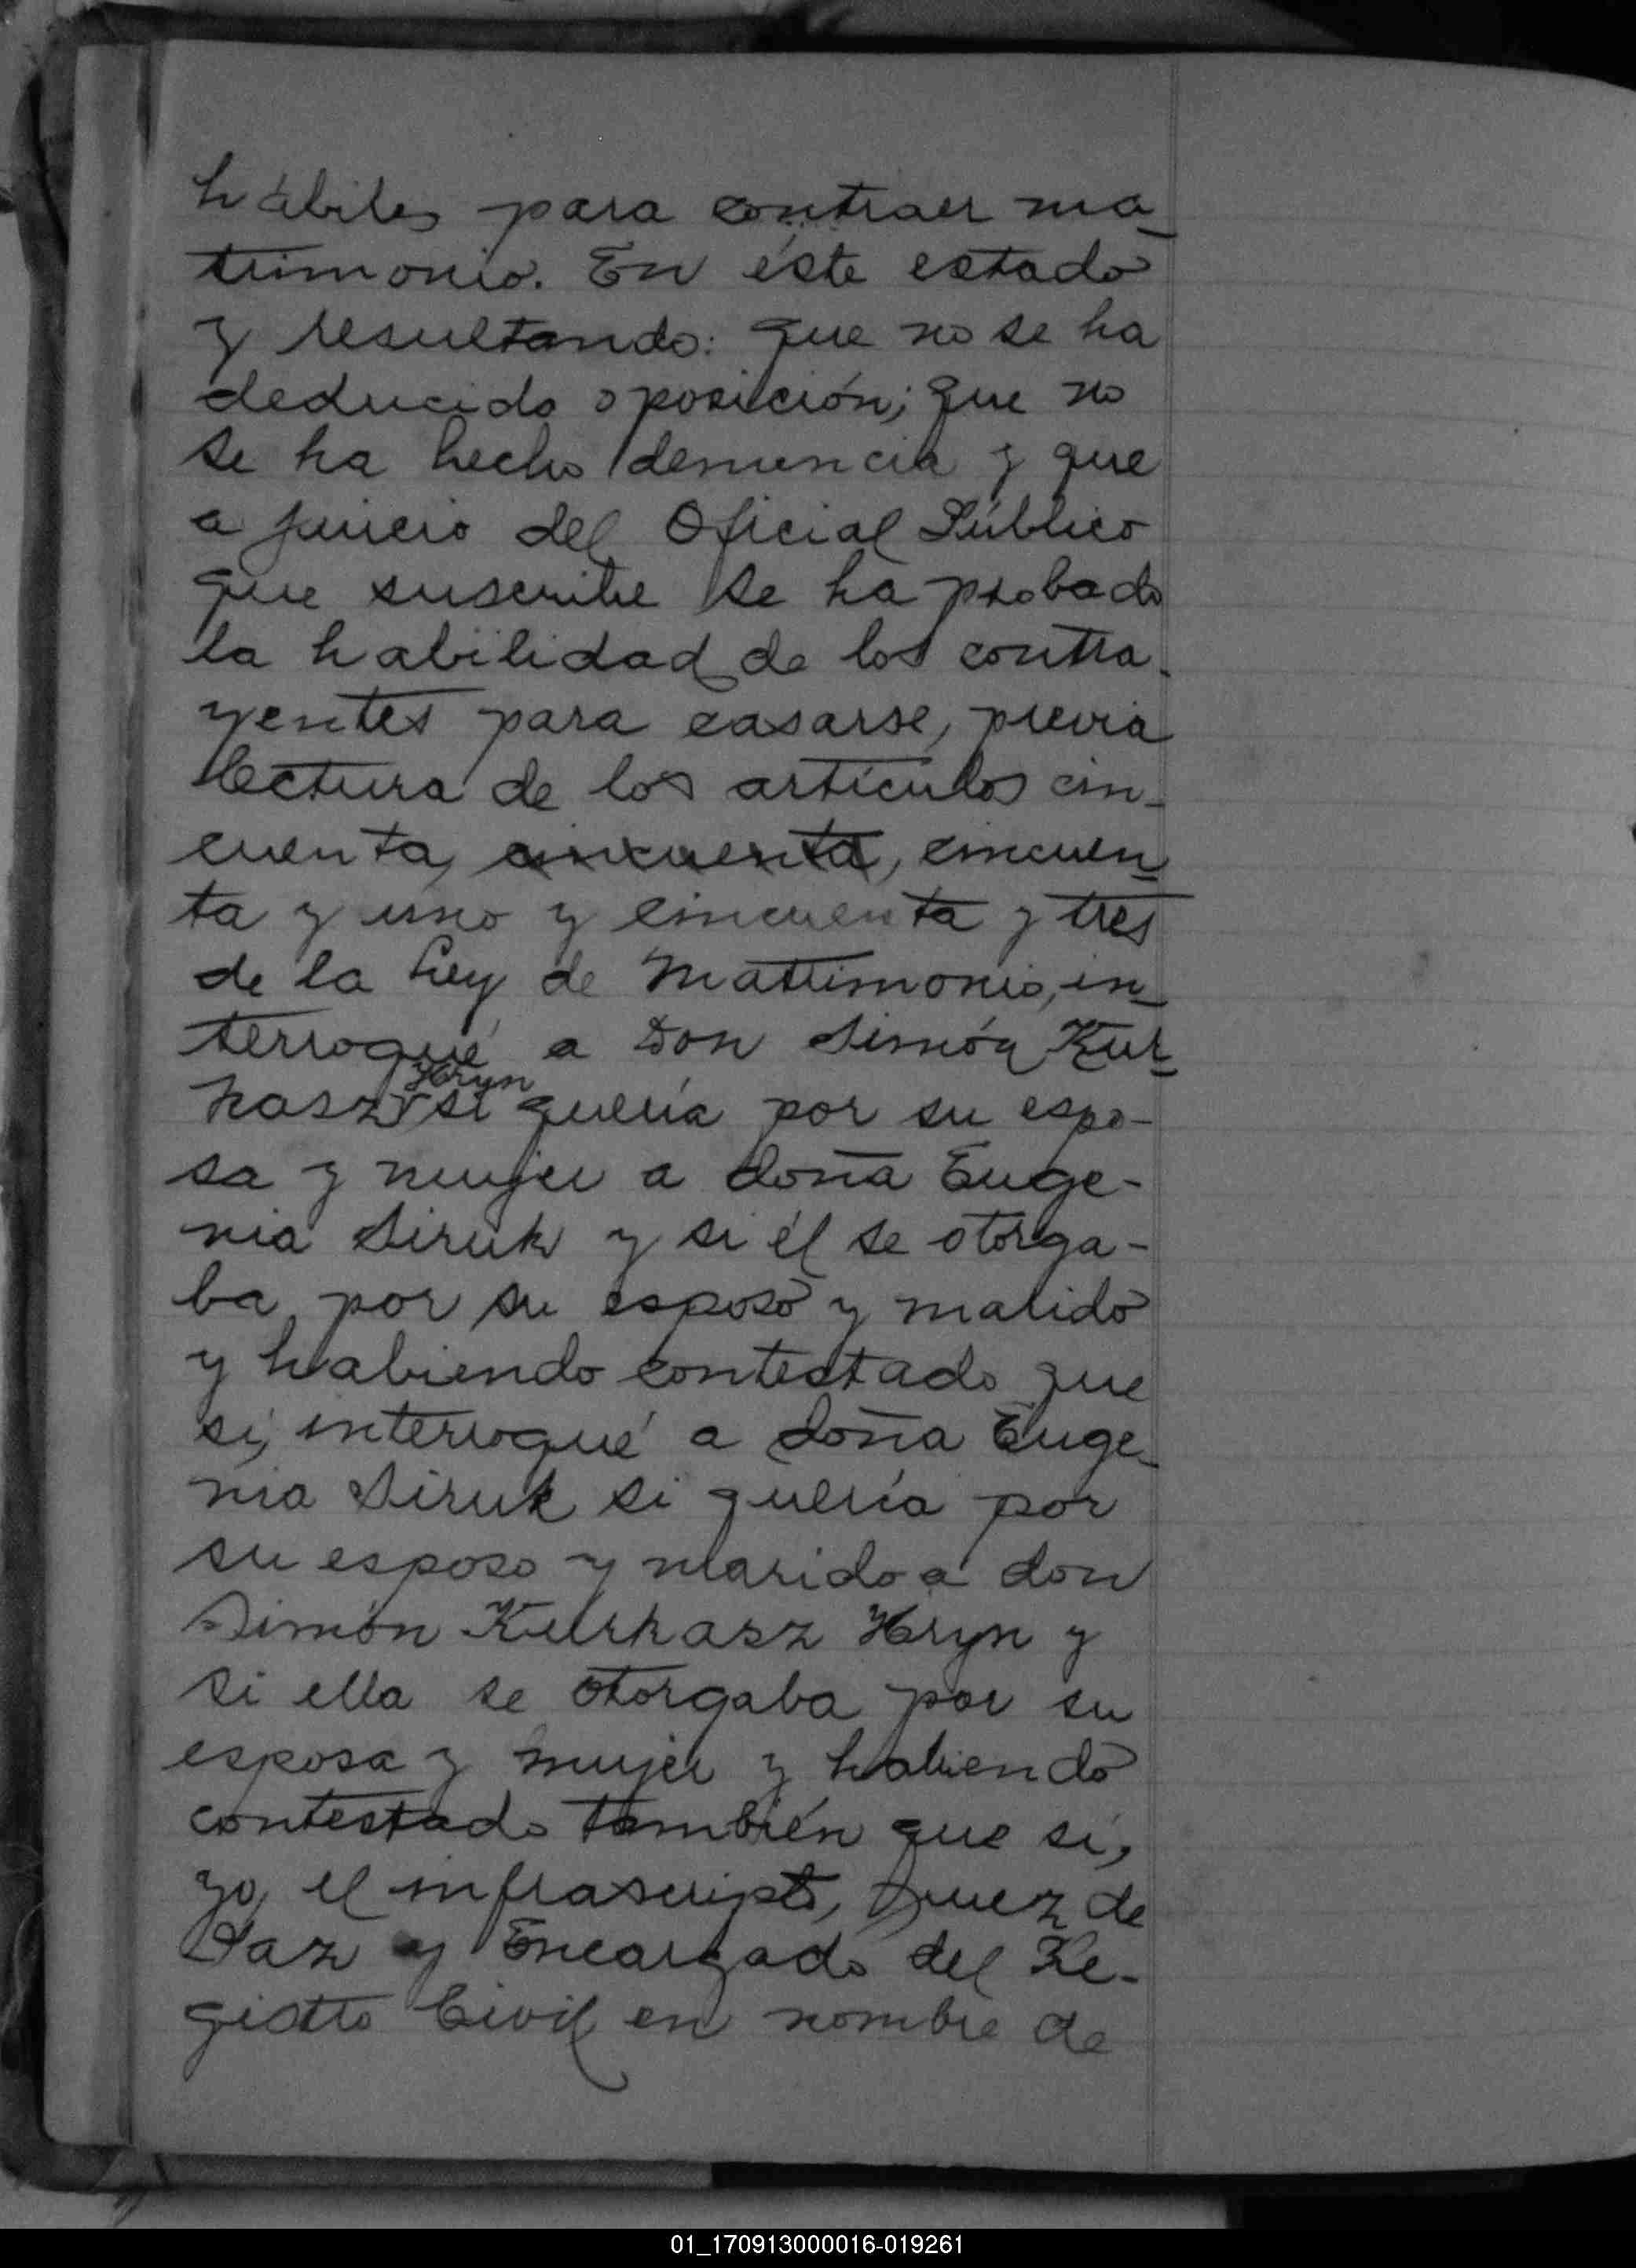 hábiles para contraer ma-
trimonio. En éste estado
y resultando: que no se ha
deducido oposición; que no
se ha hecho denuncia y que
a juicio del Oficial Público
que suscribe se ha probado
la habilidad de los contra-
yentes para casarse, previa
lectura de los artículos cin-
cuenta, cincuenta, cincuen-
ta y uno y cincuenta y tres
de la Ley de Matrimonio, in-
terrogué a Don Simón Kur-
Hryn
hasz si quería por su espo-
sa y mujer a doña Euge-
nia Siruk y si él se otorga-
ba por su esposo y marido
y habiendo contestado que
sí, interrogué a doña Euge-
nia Siruk si quería por
su esposo y marido a don
Simón Kurhasz Hryn y
si ella se otorgaba por su
esposa y mujer y habiendo
contestado también que sí,
yo, el infrascripto, Juez de
Paz y Encargado del Re-
gistro Civil en nombre de
01_170913000016-019261